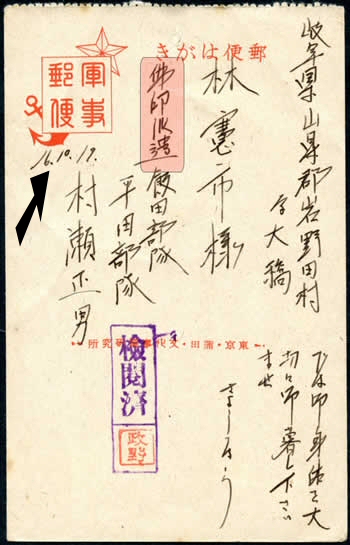 郵便はがき
軍事郵便
岐阜県山県郡岩野田村
字大稿
林憲市様
佛印派遣飯田部隊
平田部隊
16.10.19.
村瀬正男
検閲済
東京・蒲田・文
研究所
御身体を大
切に御暮し下さい
ませ
さようなら